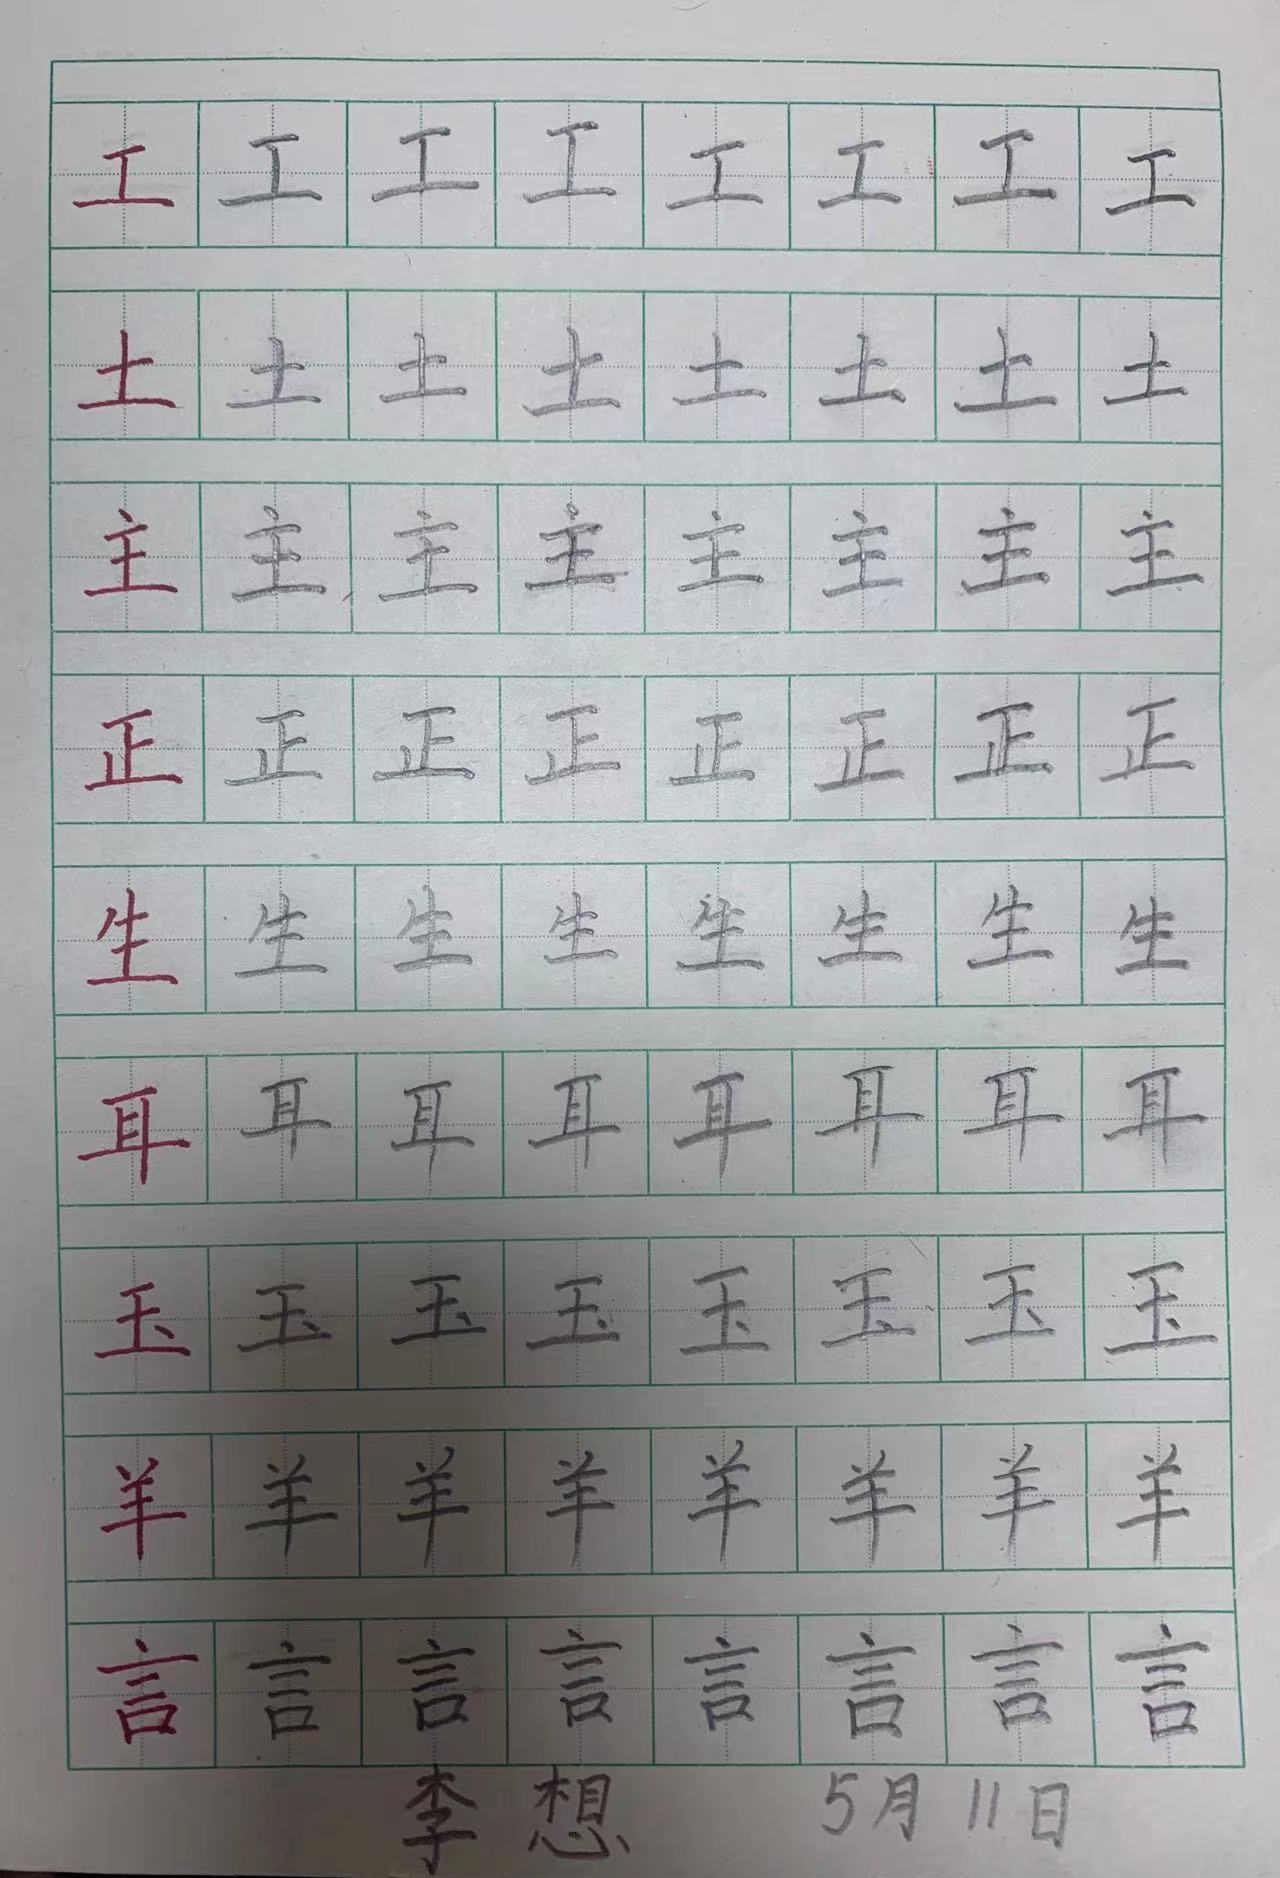 工工工工工工工工
土土土土土土土土
主主主主主主主主
正正正正正正正正
生生生生生生生生
耳耳耳耳耳耳耳耳
玉玉玉玉玉玉玉玉
羊羊羊羊羊羊羊羊
言言言言言言言言
李想 5月11日